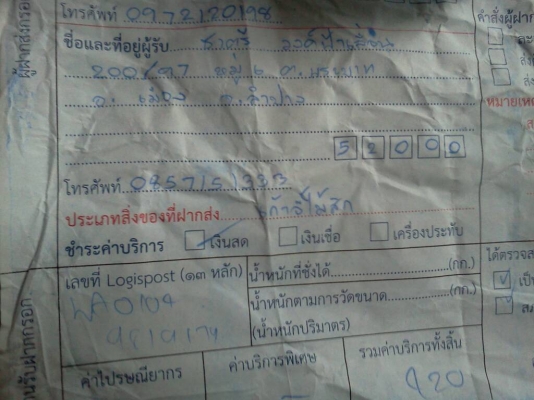 ผู้ฝากส่งกรอก
โทรศัพท์ 0972120198
คำสั่งผู้ฝาก
ชื่อและที่อยู่ผู้รับ ชาตรี
200/97 หมู่ ๖ ต. พระบาท
อ. เมือง จ. ลำปาง
หมายเหตุ
52000
โทรศัพท์ 0857151333
ประเภทสิ่งของที่ฝากส่ง เก้าอี้ไม้สัก
ชำระค่าบริการ เงินสด เงินเชื่อ เครื่องประทับ
เลขที่ Logispost (๑๓ หลัก) น้ำหนักที่ชั่งได้ (กก.)
น้ำหนักตามการวัดขนาด (กก.)
(น้ำหนักปริมาตร)
ค่าไปรษณียากร ค่าบริการพิเศษ รวมค่าบริการทั้งสิ้น
920